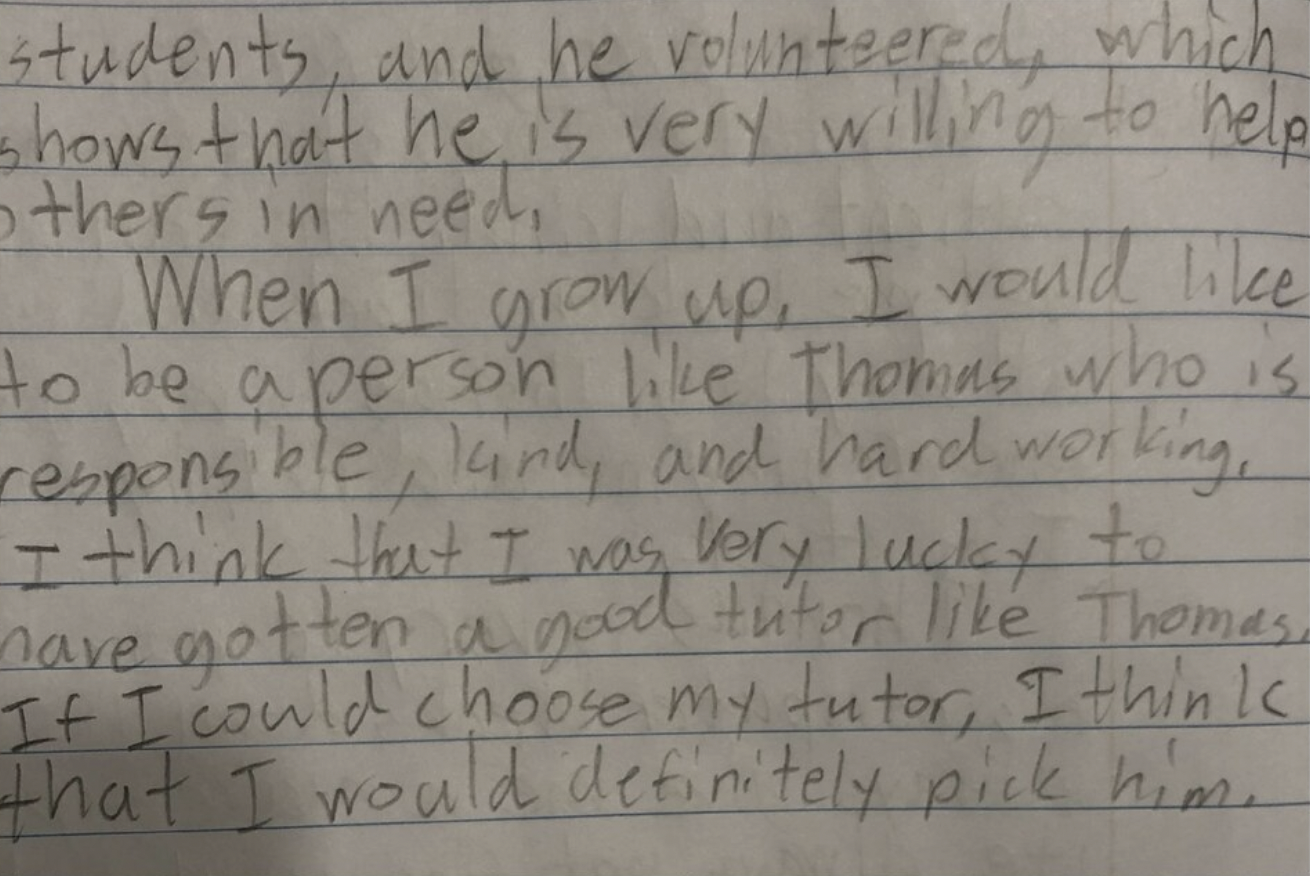 students, and he volunteered, which
shows that he is very willing to help
others in need.
When I grow up, I would like
to be a person like Thomas who is
responsible, kind, and hard working.
I think that I was very lucky to
have gotten a good tutor like Thomas.
If I could choose my tutor, I think
that I would definitely pick him.